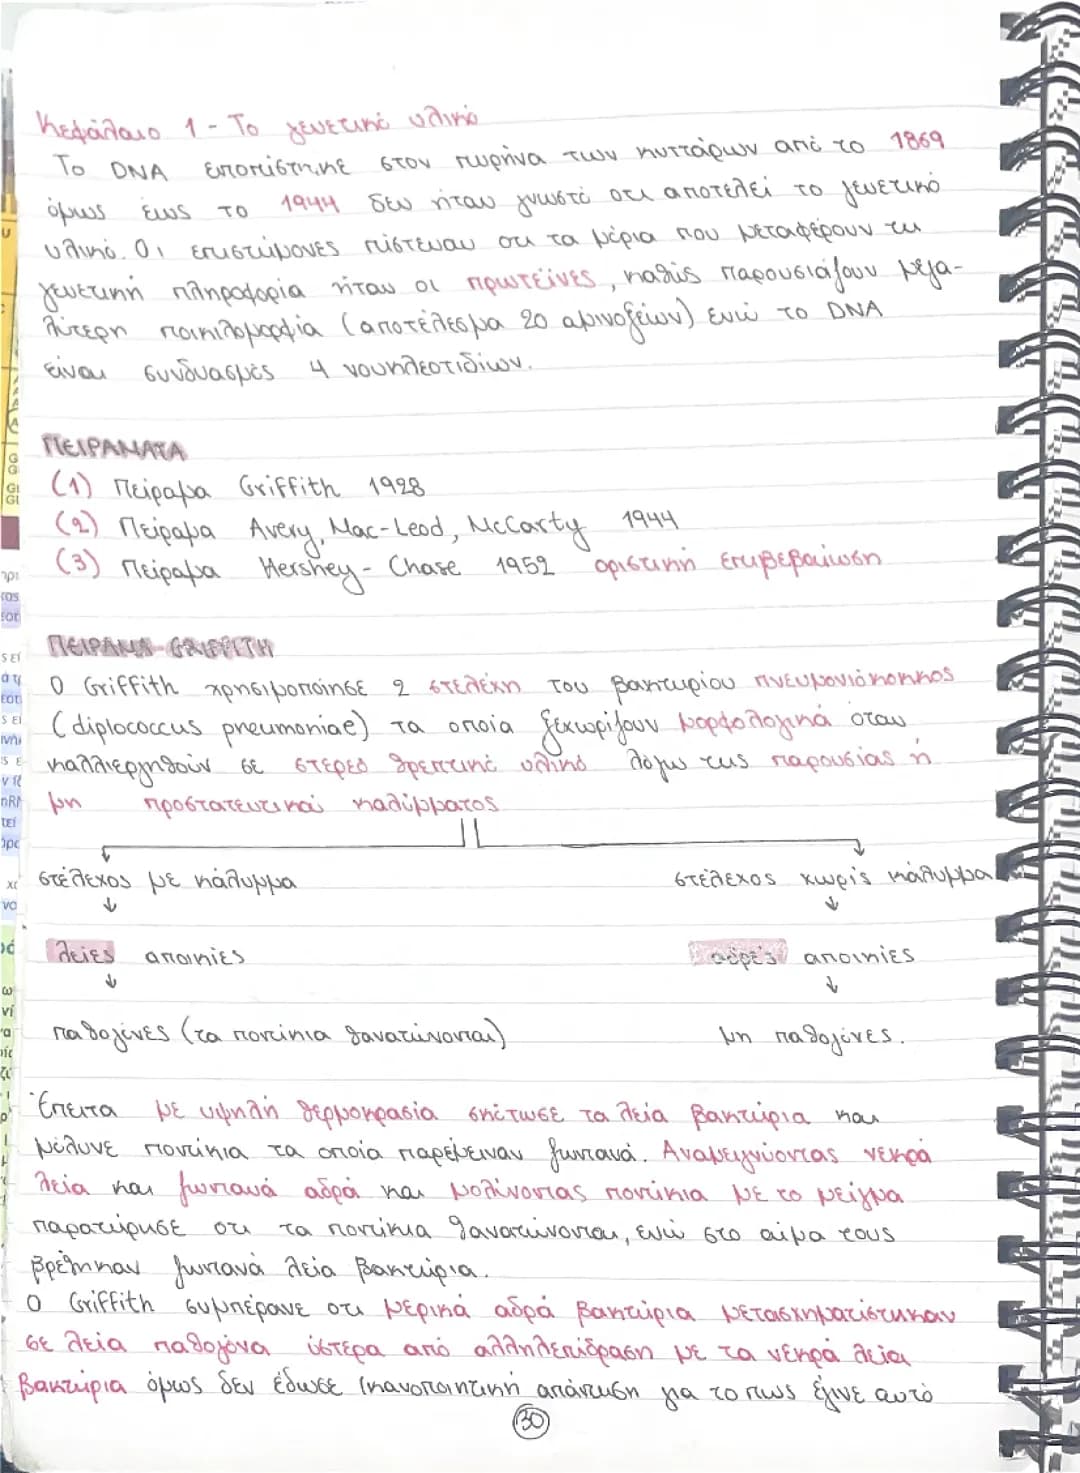 Κεφάλαιο 1 - Το γενετικό υλικό
Το DNA εντοπίστηκε στον πυρήνα των κυττάρων από το 1869
όμως έως το 1944 δεν ήταν γνωστό οτι αποτελεί το γενετικό
υλικό. Οι επιστήμονες πίστευαν οτι τα μόρια που μεταφέρουν τη
γενετική πληροφορία ήταν οι πρωτεΐνες, καθώς παρουσιάζουν μεγα-
λύτερη ποικιλομορφία (αποτέλεσμα 20 αμινοξέων) ενώ το DNA
είναι συνδυασμός 4 νουκλεοτιδίων.
ΠΕΙΡΑΜΑΤΑ
(1) Πείραμα Griffith 1928
(2) Πείραμα Avery, Mac-Leod, McCarty 1944
(3) Πείραμα Hershey - Chase 1952 οριστική επιβεβαίωση
ΠΕΙΡΑΜΑ GRIFFITH
Ο Griffith χρησιμοποίησε 2 στελέχη του βακτηρίου πνευμονιόκοκκος
(diplococcus pneumoniae) τα οποία ξεχωρίζουν μορφολογικά όταν
καλλιεργηθούν σε στερεό θρεπτικό υλικό λόγω της παρουσίας ή
μη προστατευτικού καλύμματος
στέλεχος με κάλυμμα στέλεχος χωρίς κάλυμμα
λείες αποικίες αδρές αποικίες
παθογόνες (τα ποντίκια θανατώνονται) μη παθογόνες.
Έπειτα με υψηλή θερμοκρασία σκότωσε τα λεία βακτήρια και
μόλυνε ποντίκια τα οποία παρέμειναν ζωντανά. Αναμειγνύοντας νεκρά
λεία και ζωντανά αδρά και μολύνοντας ποντίκια με το μείγμα
παρατήρησε οτι τα ποντίκια θανατώνονται, ενώ στο αίμα τους
βρέθηκαν ζωντανά λεία βακτήρια.
Ο Griffith συμπέρανε οτι μερικά αδρά βακτήρια μετασχηματίστηκαν
σε λεία παθογόνα ύστερα από αλληλεπίδραση με τα νεκρά λεία
βακτήρια όμως δεν έδωσε ικανοποιητική απάντηση για το πως έγινε αυτό
30